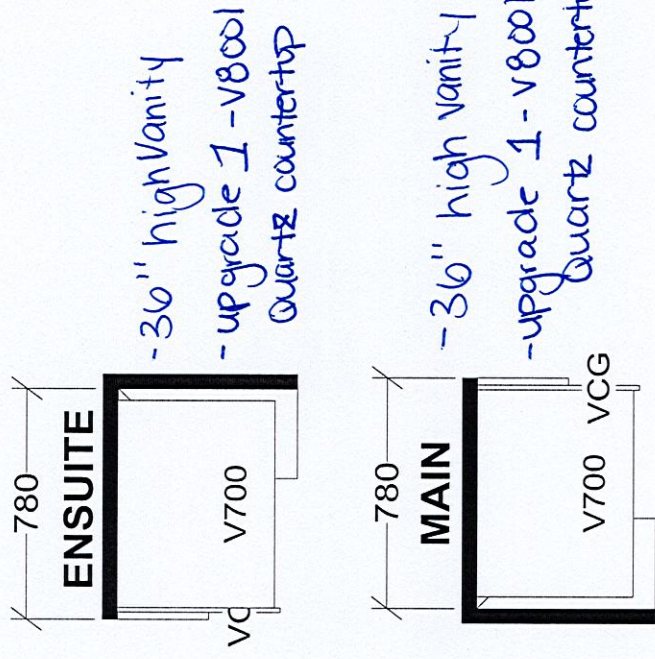 780
ENSUITE
V700
-36" high Vanity
-upgrade 1 -V8001
Quartz countertop
780
MAIN
V700 VCG
-36" high vanity
-upgrade 1 -V8001
Quartz